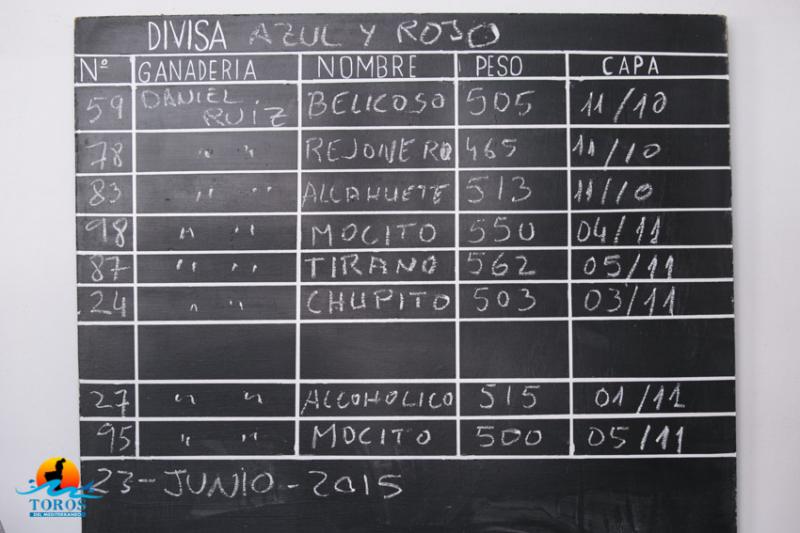 DIVISA AZUL Y ROJO
Nº GANADERIA NOMBRE PESO CAPA
59 DANIEL RUIZ BELICOSO 505 11/10
78 " " REJONERO 465 11/10
83 " " ALCAHUETE 513 11/10
98 " " MOCITO 550 04/11
87 " " TIRANO 562 05/11
24 " " CHUPITO 503 03/11
27 " " ALCOHOLICO 515 01/11
95 " " MOCITO 500 05/11
23-JUNIO-2015
TOROS
DEL MEDITERRANEO